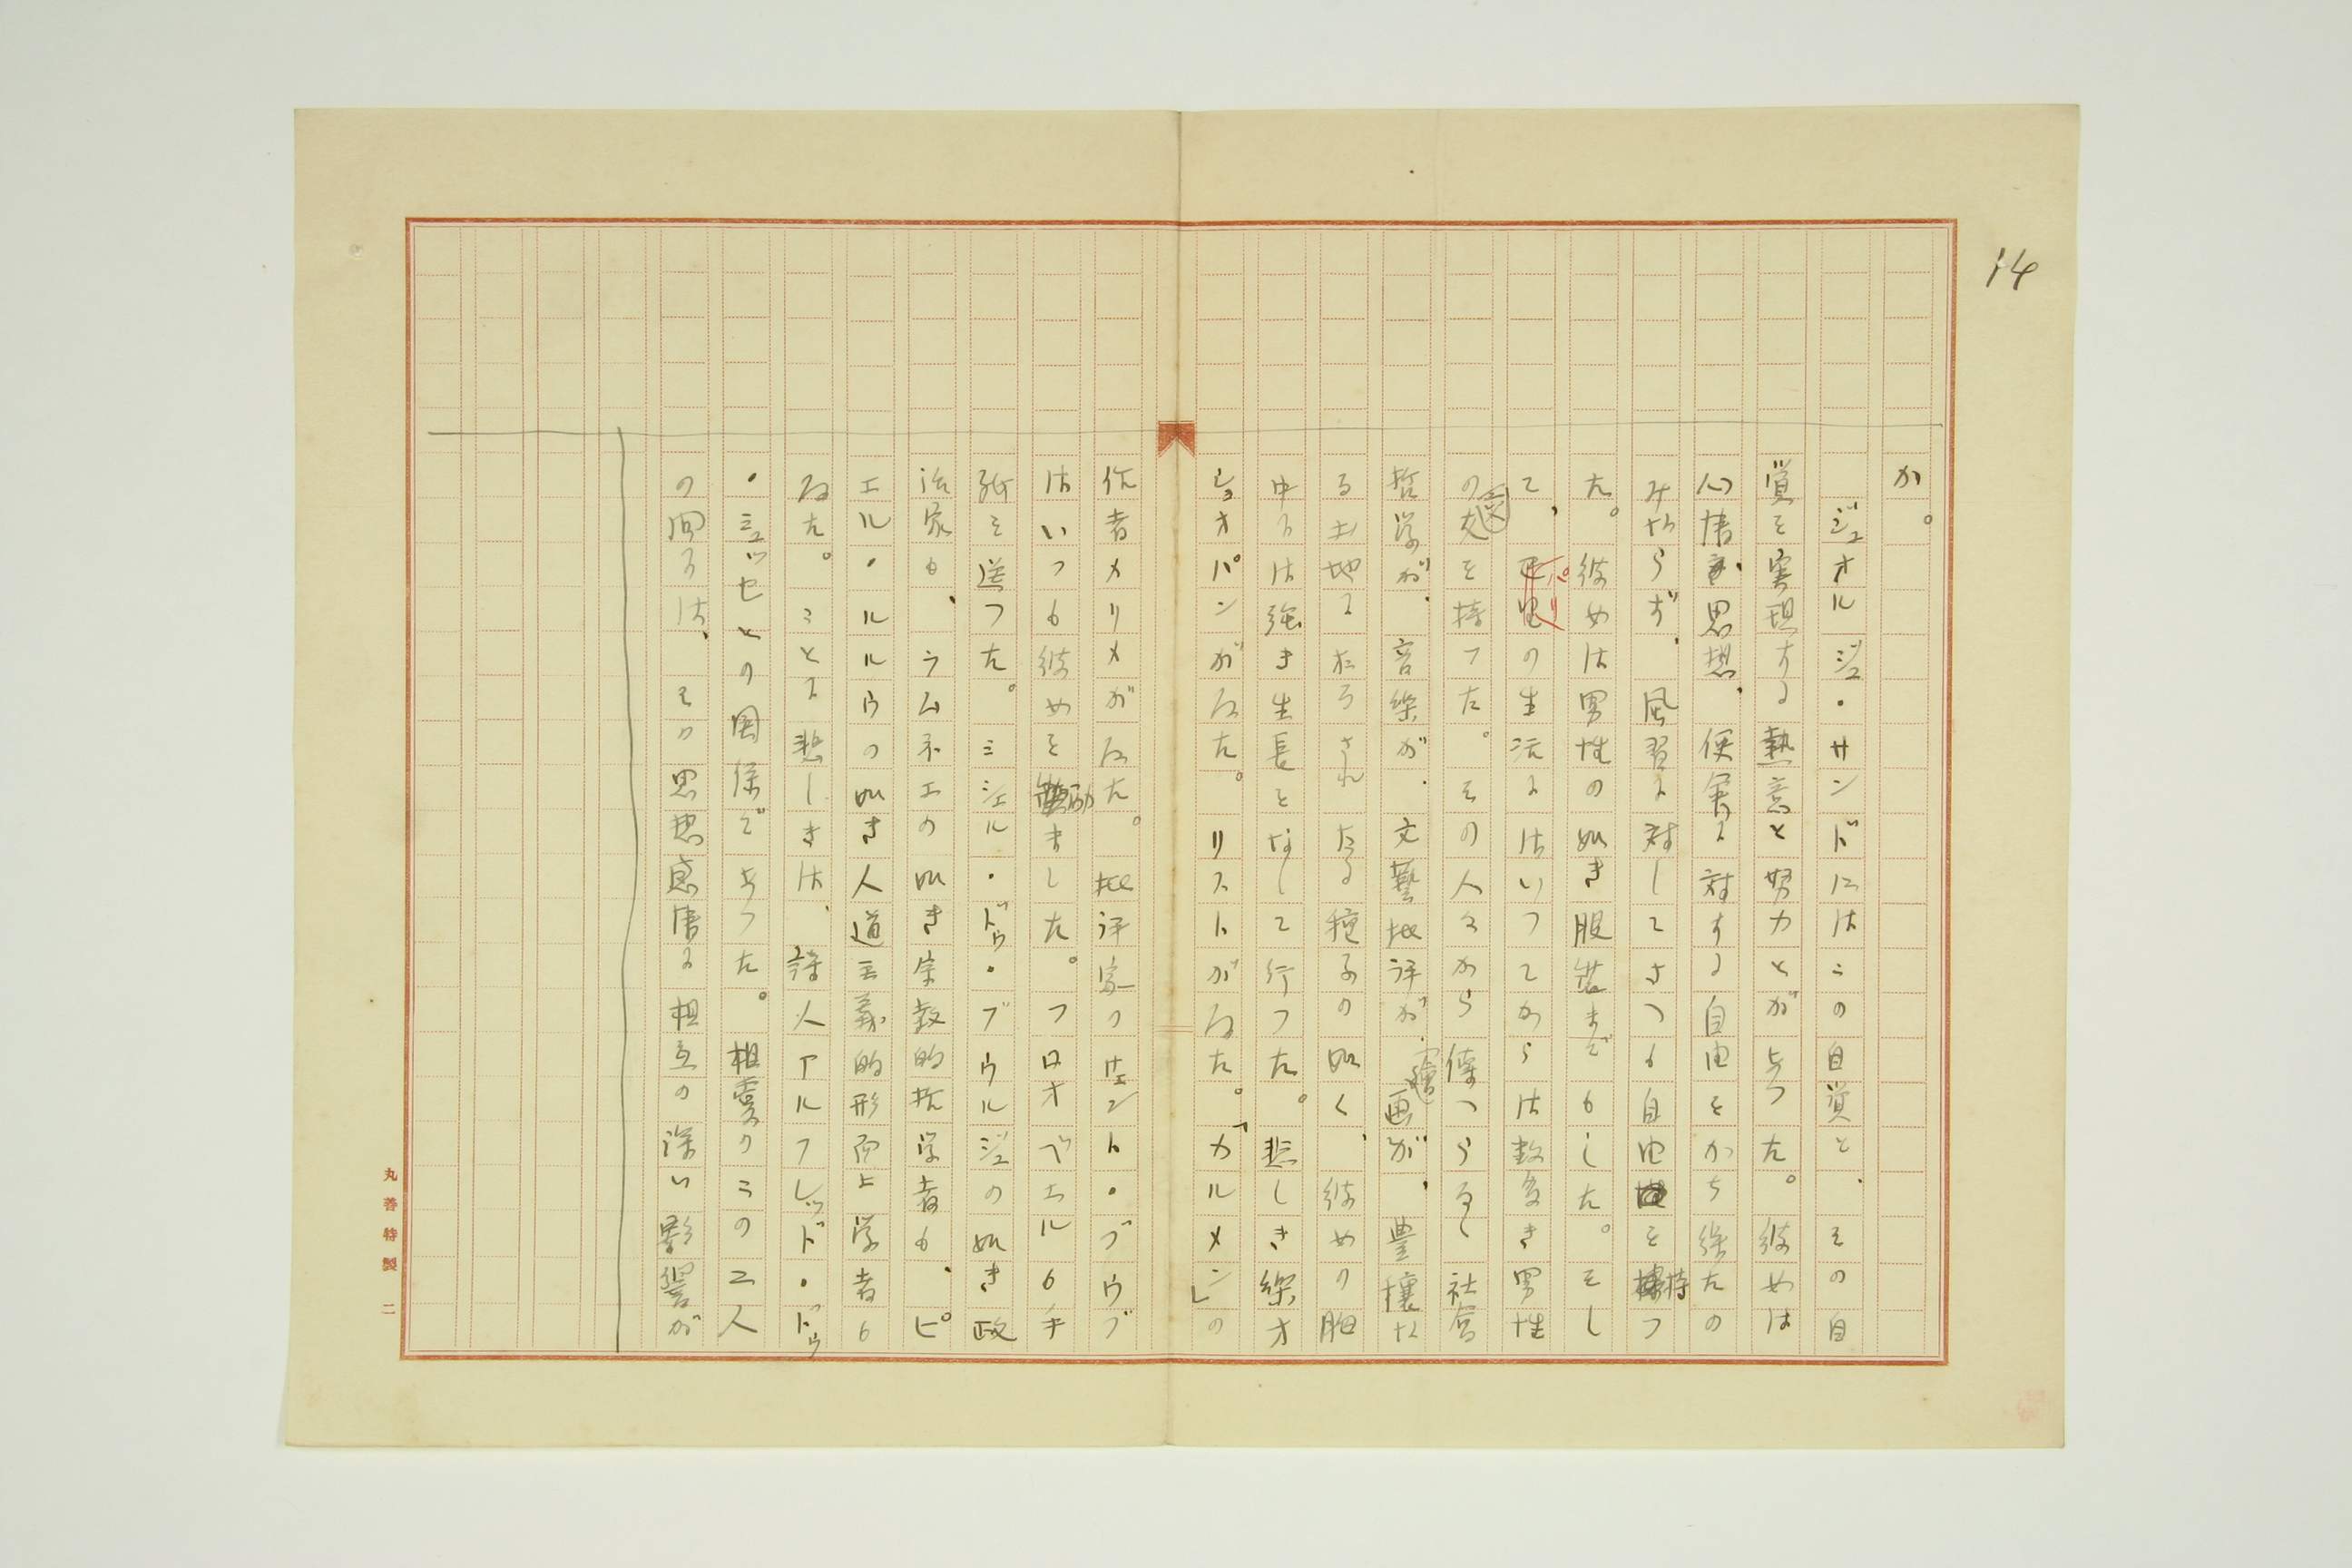 14
か。
ジュオルジュ・サンドにはこの自覚と、その自
覚を実現する熱意と努力とがあつた。彼女は
心情、思想、便実に対する自由をかち得たの
みならず、風習に対してさへも自由を持つ
た。彼女は男性の如き服装までもした。そし
て、パリの生活にはいつてからは数多き男性
の交友を持つた。その人々から伝へらるゝ社会
哲学が、音楽が、文藝批評が、繪画が、豊穣な
る土地におろされたる種子の如く、彼女の胸
中には強き生長となして行つた。悲しき楽才
ショオパンがゐた。リストがゐた。「カルメン」の
作者メリメがゐた。批評家のサント・ブウブ
はいつも彼女を激励ました。フロオベエルも手
紙を送つた。ミシェル・ドゥ・ブウルジュの如き政
治家も、ラムネエの如き宗教的哲学者も、ピ
エル・ルルウの如き人道主義的形而上学者も
ゐた。ことに悲しきは、詩人アルフレッド・ドゥ
・ミュッセとの関係であつた。相愛のこの二人
の間には、その思想感情に相互の深い影響が
丸善特製 二